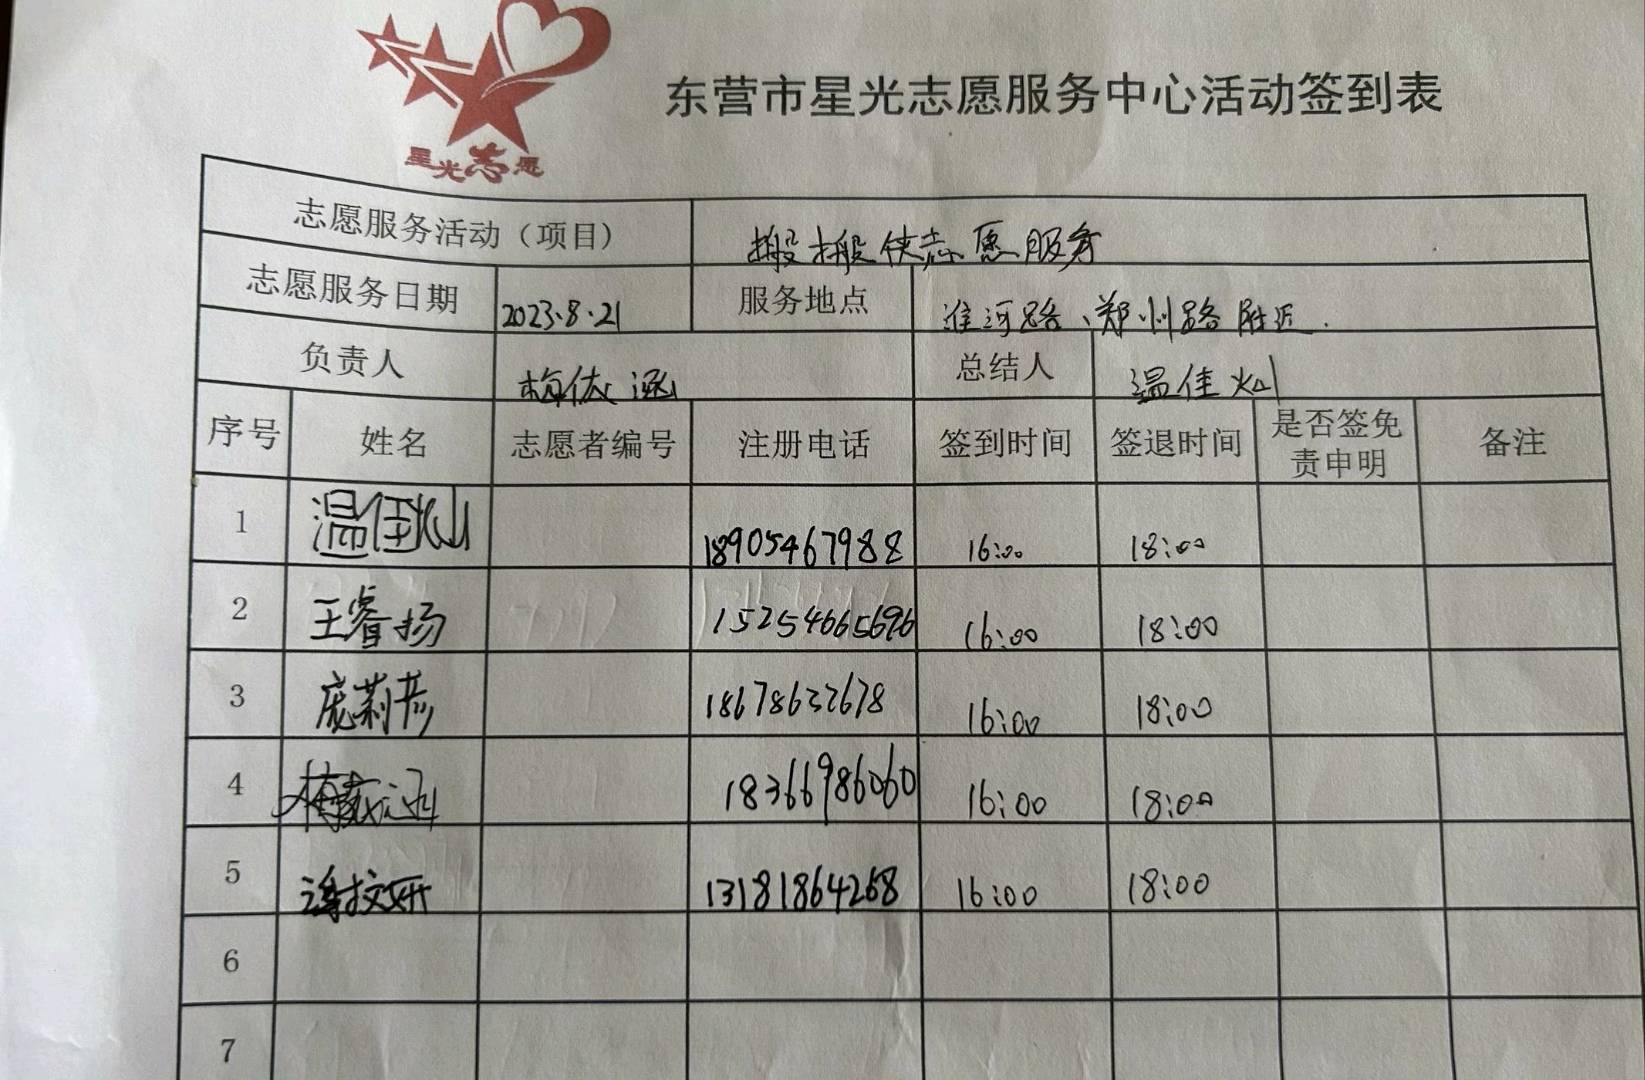 星光志愿
东营市星光志愿服务中心活动签到表
志愿服务活动（项目） 搬搬侠志愿服务
志愿服务日期 2023.8.21 服务地点 淮河路、郑州路附近.
负责人 梅依涵 总结人 温佳灿
序号 姓名 志愿者编号 注册电话 签到时间 签退时间 是否签免责申明 备注
1 温佳灿 18905467988 16:00 18:00
2 王睿扬 15254665696 16:00 18:00
3 庞莉 18678632678 16:00 18:00
4 梅 涵 18366986060 16:00 18:00
5 13181864268 16:00 18:00
6
7